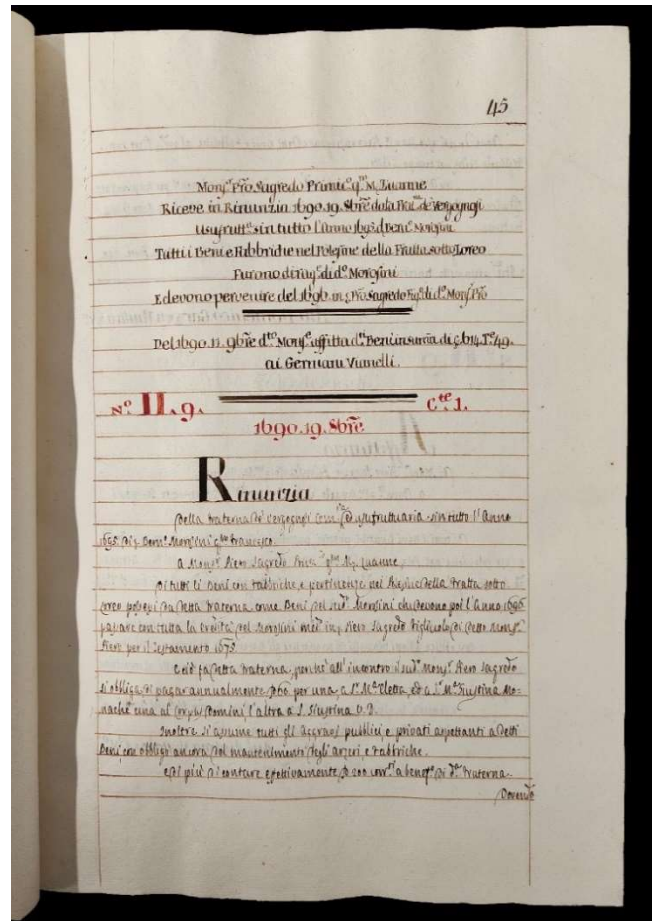 45
Mons.r Pro Sagredo Primic.o q.m M. Zuanne
Riceve in Rinunzia 1690. 19. 8bre dala Frat.a de Vergognosi
Usufrutt.a sin tutto l'anno 1695. d Beni Morosini
Tutti i Beni e Fabbriche nel Polesine della Fratta sotto Loreo
Furono di rag.e di d.o Morosini
E devono pervenire del 1696. in Pro Sagredo Fig.o di d.o Mons.r Pro
Del 1690. 12. 9bre d.to Mons.r affitta d.ti Beni in summa di c. 614. T.e 49.
ai Germani Vianelli.
N.o II. 9. C.te 1.
1690. 19. 8bre
Rinunzia
Della Fraterna de Vergognosi Com.ria usufruttuaria sin tutto l'Anno
1695. Di Beni Morosini q.m Francesco.
a Mons.r Piero Sagredo Prim.o q.m M. Zuanne
Di tutti li Beni con Fabbriche, e pertinenze nel Della Fratta sotto
Loreo possessi da Detta Fraterna come Beni Del sud.o Morosini che Devono poi l'anno 1696.
passare con tutta la eredità Del Morosini med.o in Piero Sagredo Figliuolo di Detto Mons.r
Piero per il Testamento 1675.
E ciò fa Detta Fraterna, perchè all'incontro il sud.o Mons.r Piero Sagredo
si obbliga di pagar annualmente 60 per una, a S.r M.a Eletta, ed a S.r M.a Giustina Mo=
nache una al Corpus Domini l'altra a S. Giustina
Inoltre si assume tutti gli Aggravi pubblici, e privati aspettanti a Detti
Beni con obbligo ancora Del mantenimento Degli arzeri, e Fabbriche.
e Di più Di contare effettivamente 200 corr.ti a benef.o Di D.a Fraterna.
Dovendo